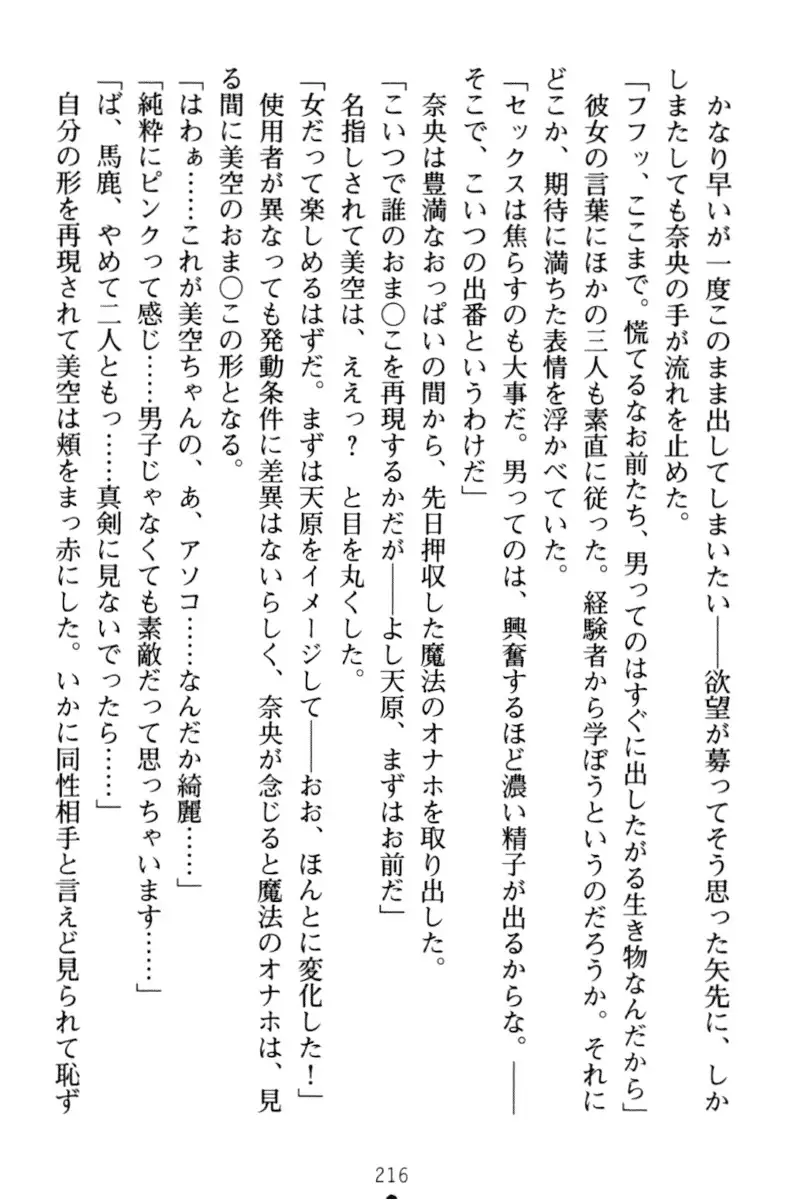 かなり早いが一度このまま出してしまいたい――欲望が募ってそう思った矢先に、しか
しまたしても奈央の手が流れを止めた。
「フフッ、ここまで。慌てるなお前たち、男ってのはすぐに出したがる生き物なんだから」
彼女の言葉にほかの三人も素直に従った。経験者から学ぼうというのだろうか。それに
どこか、期待に満ちた表情を浮かべていた。
「セックスは焦らすのも大事だ。男ってのは、興奮するほど濃い精子が出るからな。――
そこで、こいつの出番というわけだ」
奈央は豊満なおっぱいの間から、先日押収した魔法のオナホを取り出した。
「こいつで誰のおま〇こを再現するかだが――よし天原、まずはお前だ」
名指しされて美空は、ええっ？　と目を丸くした。
「女だって楽しめるはずだ。まずは天原をイメージして――おお、ほんとに変化した！」
使用者が異なっても発動条件に差異はないらしく、奈央が念じると魔法のオナホは、見
る間に美空のおま〇この形となる。
「はわぁ……これが美空ちゃんの、あ、アソコ……なんだか綺麗……」
「純粋にピンクって感じ……男子じゃなくても素敵だって思っちゃいます……」
「ば、馬鹿、やめて二人ともっ……真剣に見ないでったら……」
自分の形を再現されて美空は頬をまっ赤にした。いかに同性相手と言えど見られて恥ず
216